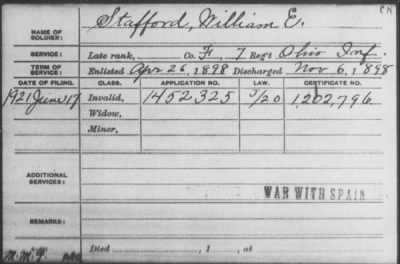 NAME OF SOLDIER: Stafford, William E.
SERVICE: Late rank, Co. F, 7 Reg't Ohio Inf.
TERM OF SERVICE: Enlisted Apr. 26, 1898 Discharged Nov 6, 1898
DATE OF FILING. CLASS. APPLICATION NO. LAW. CERTIFICATE NO.
1921 June 17 Invalid, 1452325 5/20 1,202,796
Widow,
Minor,
ADDITIONAL SERVICES:
WAR WITH SPAIN
REMARKS:
Died , 1 , at